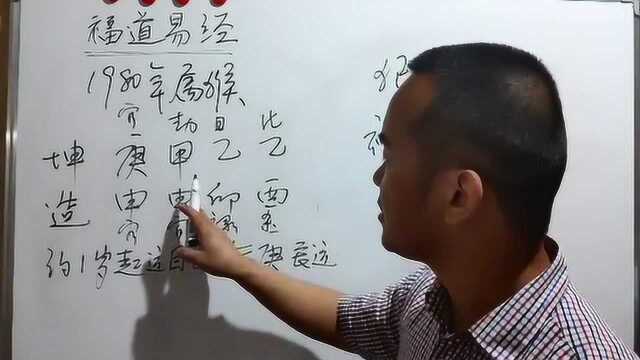 福道易经
1980年属猴
官 劫 日 比
坤 庚 甲 乙 乙
造 申 申 卯 酉
官 官 杀
约1岁起运 庚辰运